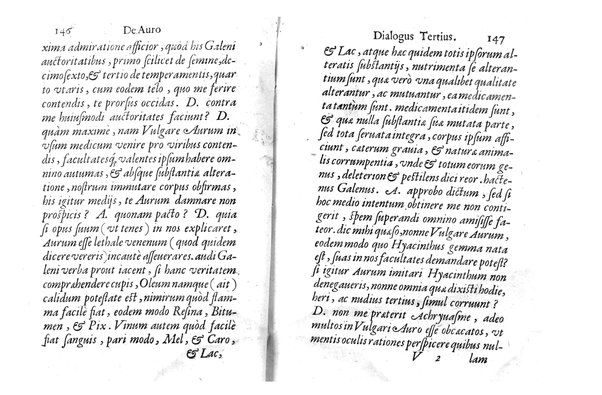 146 De Auro
xima admiratione afficior, quòd his Galeni
auctoritatibus, primo scilicet de semine, de-
cimosexto, & tertio de temperamentis, quar
to vtaris, cum eodem telo, quo me ferire
contendis, te prorsus occidas. D. contra
me huiusmodi auctoritates faciunt? D.
quàm maximè, nam Vulgare Aurum in
vsum medicum venire pro viribus conten-
dis, facultatesq, valentes ipsum habere om-
nino autumas, & absque substantiæ altera-
tione, nostrum immutare corpus obfirmas,
his igitur medijs, te Aurum damnare non
prospicis? A. quonam pacto? D. quia
si opus suum (vt tenes) in nos explicaret,
Aurum esse lethale venenum (quod quidem
dicere vereris) incautè asseuerares. audi Ga-
leni verba prout iacent, si hanc veritatem
compræhendere cupis, Oleum namque (ait)
calidum potestate est, nimirum quòd flam-
ma facilè fiat, eodem modo Resina, Bitu-
men, & Pix. Vinum autem quòd facilè
fiat sanguis, pari modo, Mel, & Caro,
& Lac,
Dialogus Tertius. 147
& Lac, atque hæc quidem totis ipsorum al-
teratis substantijs, nutrimenta se alteran-
tium sunt, quæ verò vna qualibet qualitate
alterantur, ac mutuantur, ea medicamen-
ta tantùm sunt. medicamenta itidem sunt,
& quæ nulla substantiæ suæ mutata parte,
sed tota seruata integra, corpus ipsum affi-
ciunt, cæterum grauia, & naturæ anima-
lis corrumpentia, vnde & totum eorum ge-
nus, deleterion & pestilens dici reor. hacte-
nus Galenus. A. approbo dictum, sed si
hoc medio intentum obtinere me non conti-
gerit, spem superandi omnino amisisse fa-
teor. dic mihi quæso, nonne Vulgare Aurum,
eodem modo quo Hyacinthus gemma nata
est, suas in nos facultates demandare potest?
si igitur Aurum imitari Hyacinthum non
denegaueris, nonne omnia quæ dixisti hodie,
heri, ac nudius tertius, simul corruunt?
D. non me præterit Achryuasme, adeo
multos in Vulgari Auro esse obcæcatos, vt
mentis oculis rationes perspicere quibus nul-
V 2 lam